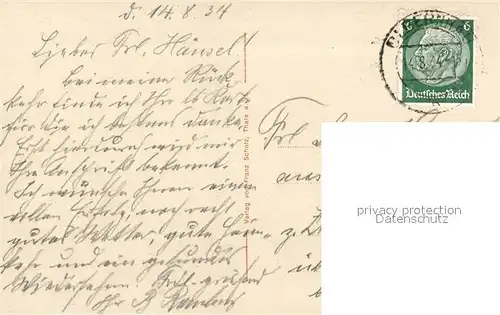 d. 14.8.34
Liebes Frl. Hänsel!
Bei meiner Rück-
kehr finde ich Ihre Kart
für die ich bestens danke.
Erst hierdurch wird mir
Ihre Anschrift bekannt.
Ich wünsche Ihnen einen
vollen Erfolg, noch recht
gutes Wetter, gute Heim-
kehr und ein gesundes
Wiedersehen.
Ihr
Verlag von Franz Scholz, Thale a.
6
Deutsches Reich
Frl
aus
privacy protection
Datenschutz